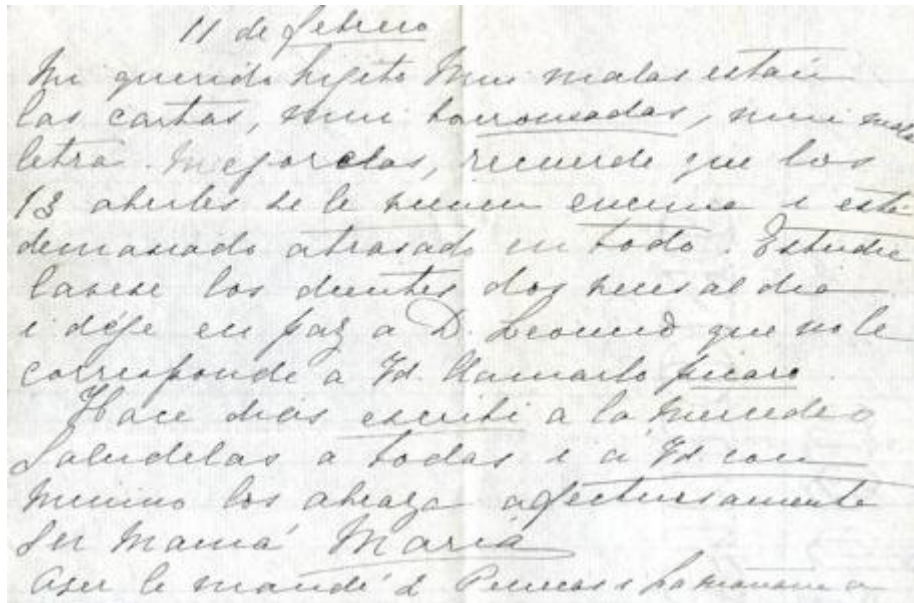 11 de febrero
Mi querido hijito Mui malas están
las cartas, mui borroneadas, mui mala
letra. Mejorelas, recuerde que los
13 abriles se le vienen encima i está
demasiado atrasado en todo. Estudie
lavese los dientes dos veces al dia
i déje en paz a D. Leonardo que no le
corresponde a Ud. llamarlo picaro.
Hace dias escribi a la Mercedes
Saludelas a todas i a Ud. con
Minino los abraza afectuosamente
Su Mamá Maria
Ayer le mandé 2 Penecas i